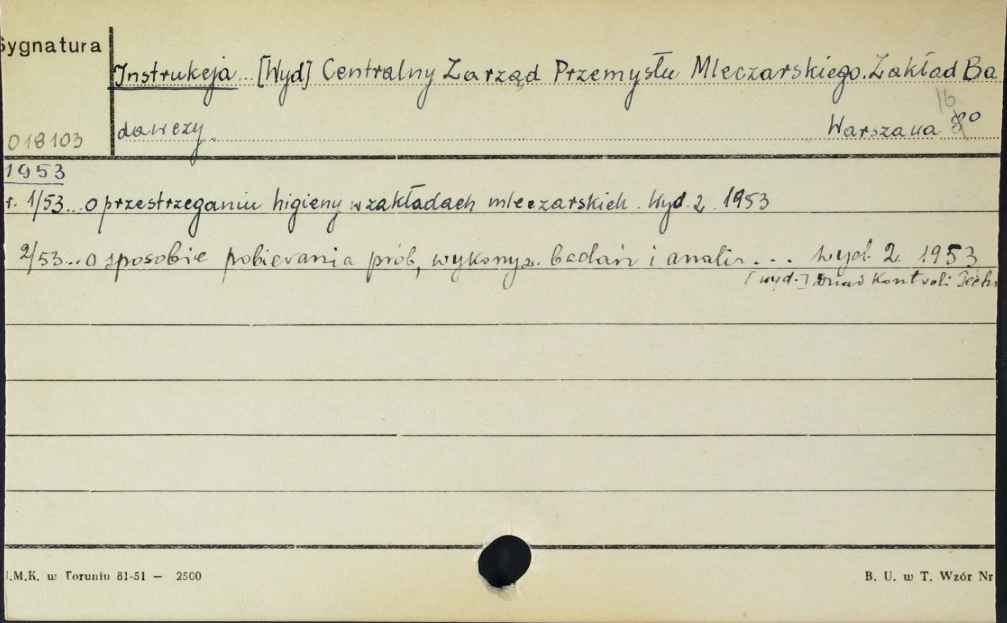 Sygnatura
Instrukcja... [Wyd] Centralny Zarząd Przemysłu Mleczarskiego. Zakład Ba
16
018103 dawczy. Warszawa 8°
1953
r. 1/53... o przestrzeganiu higieny w zakładach mleczarskich. Wyd. 2. 1953
2/53... o sposobie pobierania prób, wykonyw. badań i analiz... wyd. 2. 1953
[wyd.] Kontroli Techn
.M.K. w Toruniu 81-51 — 2500 B. U. w T. Wzór Nr